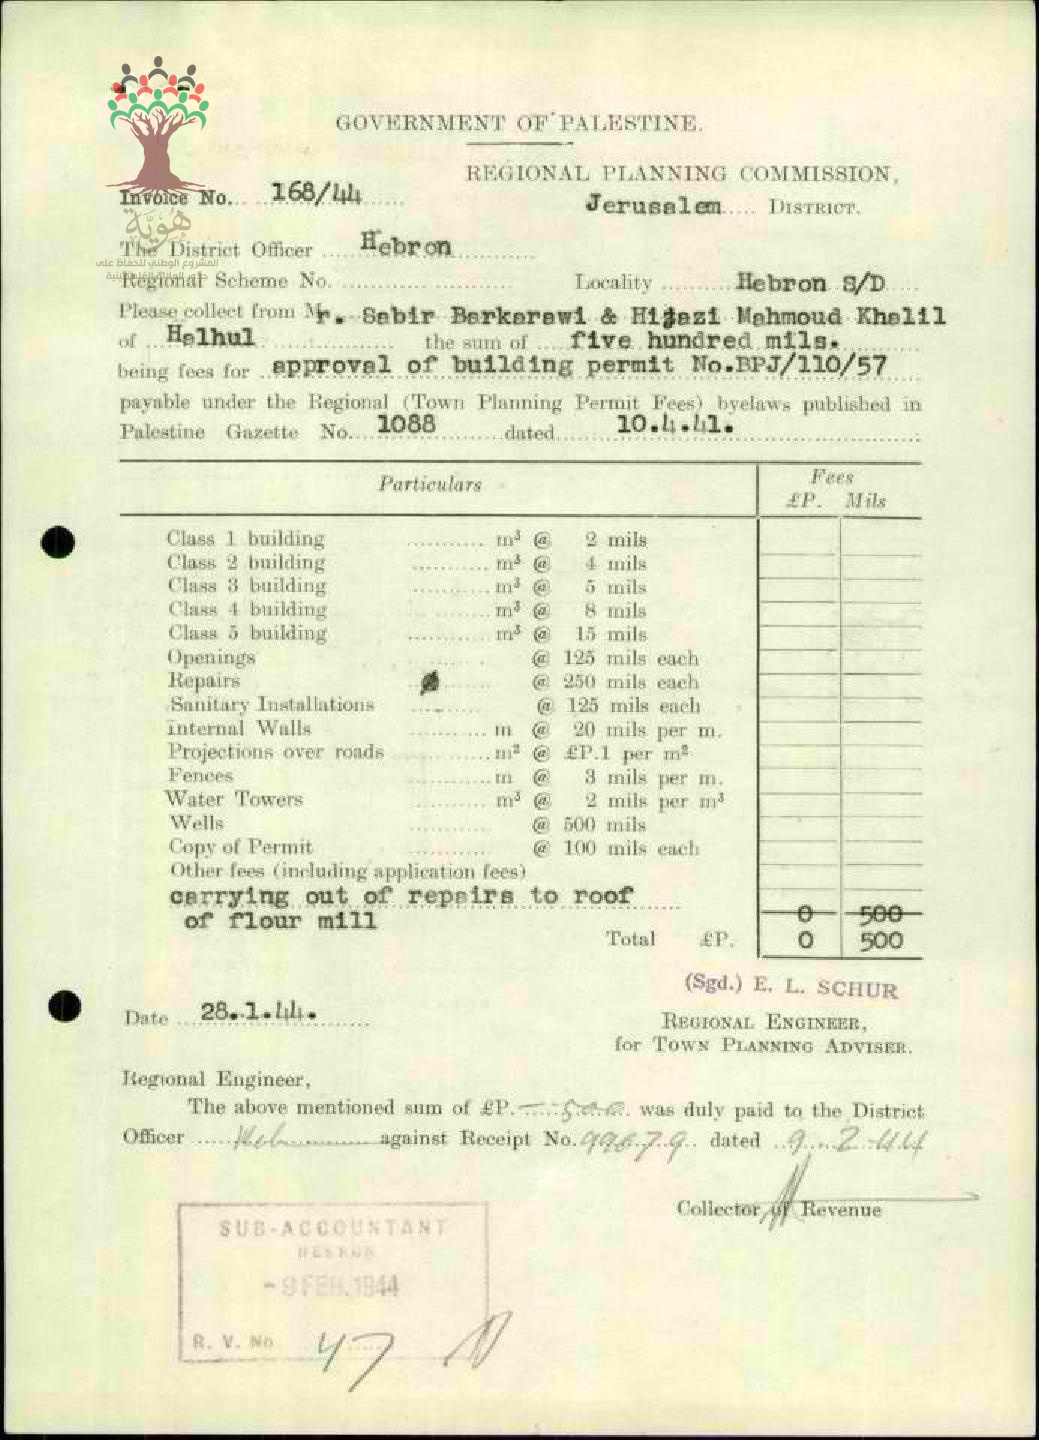 GOVERNMENT OF PALESTINE.
REGIONAL PLANNING COMMISSION,
Invoice No. 168/44
Jerusalem DISTRICT.
هُويَّة
المشروع الوطني للحفاظ على
جذور العائلة الفلسطينية
The District Officer Hebron
Regional Scheme No. Locality Hebron S/D
Please collect from Mr. Sabir Barkarawi & Hijazi Mahmoud Khalil
of Halhul the sum of five hundred mils.
being fees for approval of building permit No.BPJ/110/57
payable under the Regional (Town Planning Permit Fees) byelaws published in
Palestine Gazette No. 1088 dated 10.4.41.
Particulars Fees
£P. Mils
Class 1 building m³ @ 2 mils
Class 2 building m³ @ 4 mils
Class 3 building m³ @ 5 mils
Class 4 building m³ @ 8 mils
Class 5 building m³ @ 15 mils
Openings @ 125 mils each
Repairs @ 250 mils each
Sanitary Installations @ 125 mils each
Internal Walls m @ 20 mils per m.
Projections over roads m² @ £P.1 per m²
Fences m @ 3 mils per m.
Water Towers m³ @ 2 mils per m³
Wells @ 500 mils
Copy of Permit @ 100 mils each
Other fees (including application fees)
carrying out of repairs to roof
of flour mill 0 500
Total £P. 0 500
(Sgd.) E. L. SCHUR
Date 28.1.44.
REGIONAL ENGINEER,
for TOWN PLANNING ADVISER.
Regional Engineer,
The above mentioned sum of £P. — 500 was duly paid to the District
Officer Heb against Receipt No. 99679 dated 9.2.44
Collector of Revenue
SUB-ACCOUNTANT
HEBRON
- 9 FEB. 1944
R. V. No 47